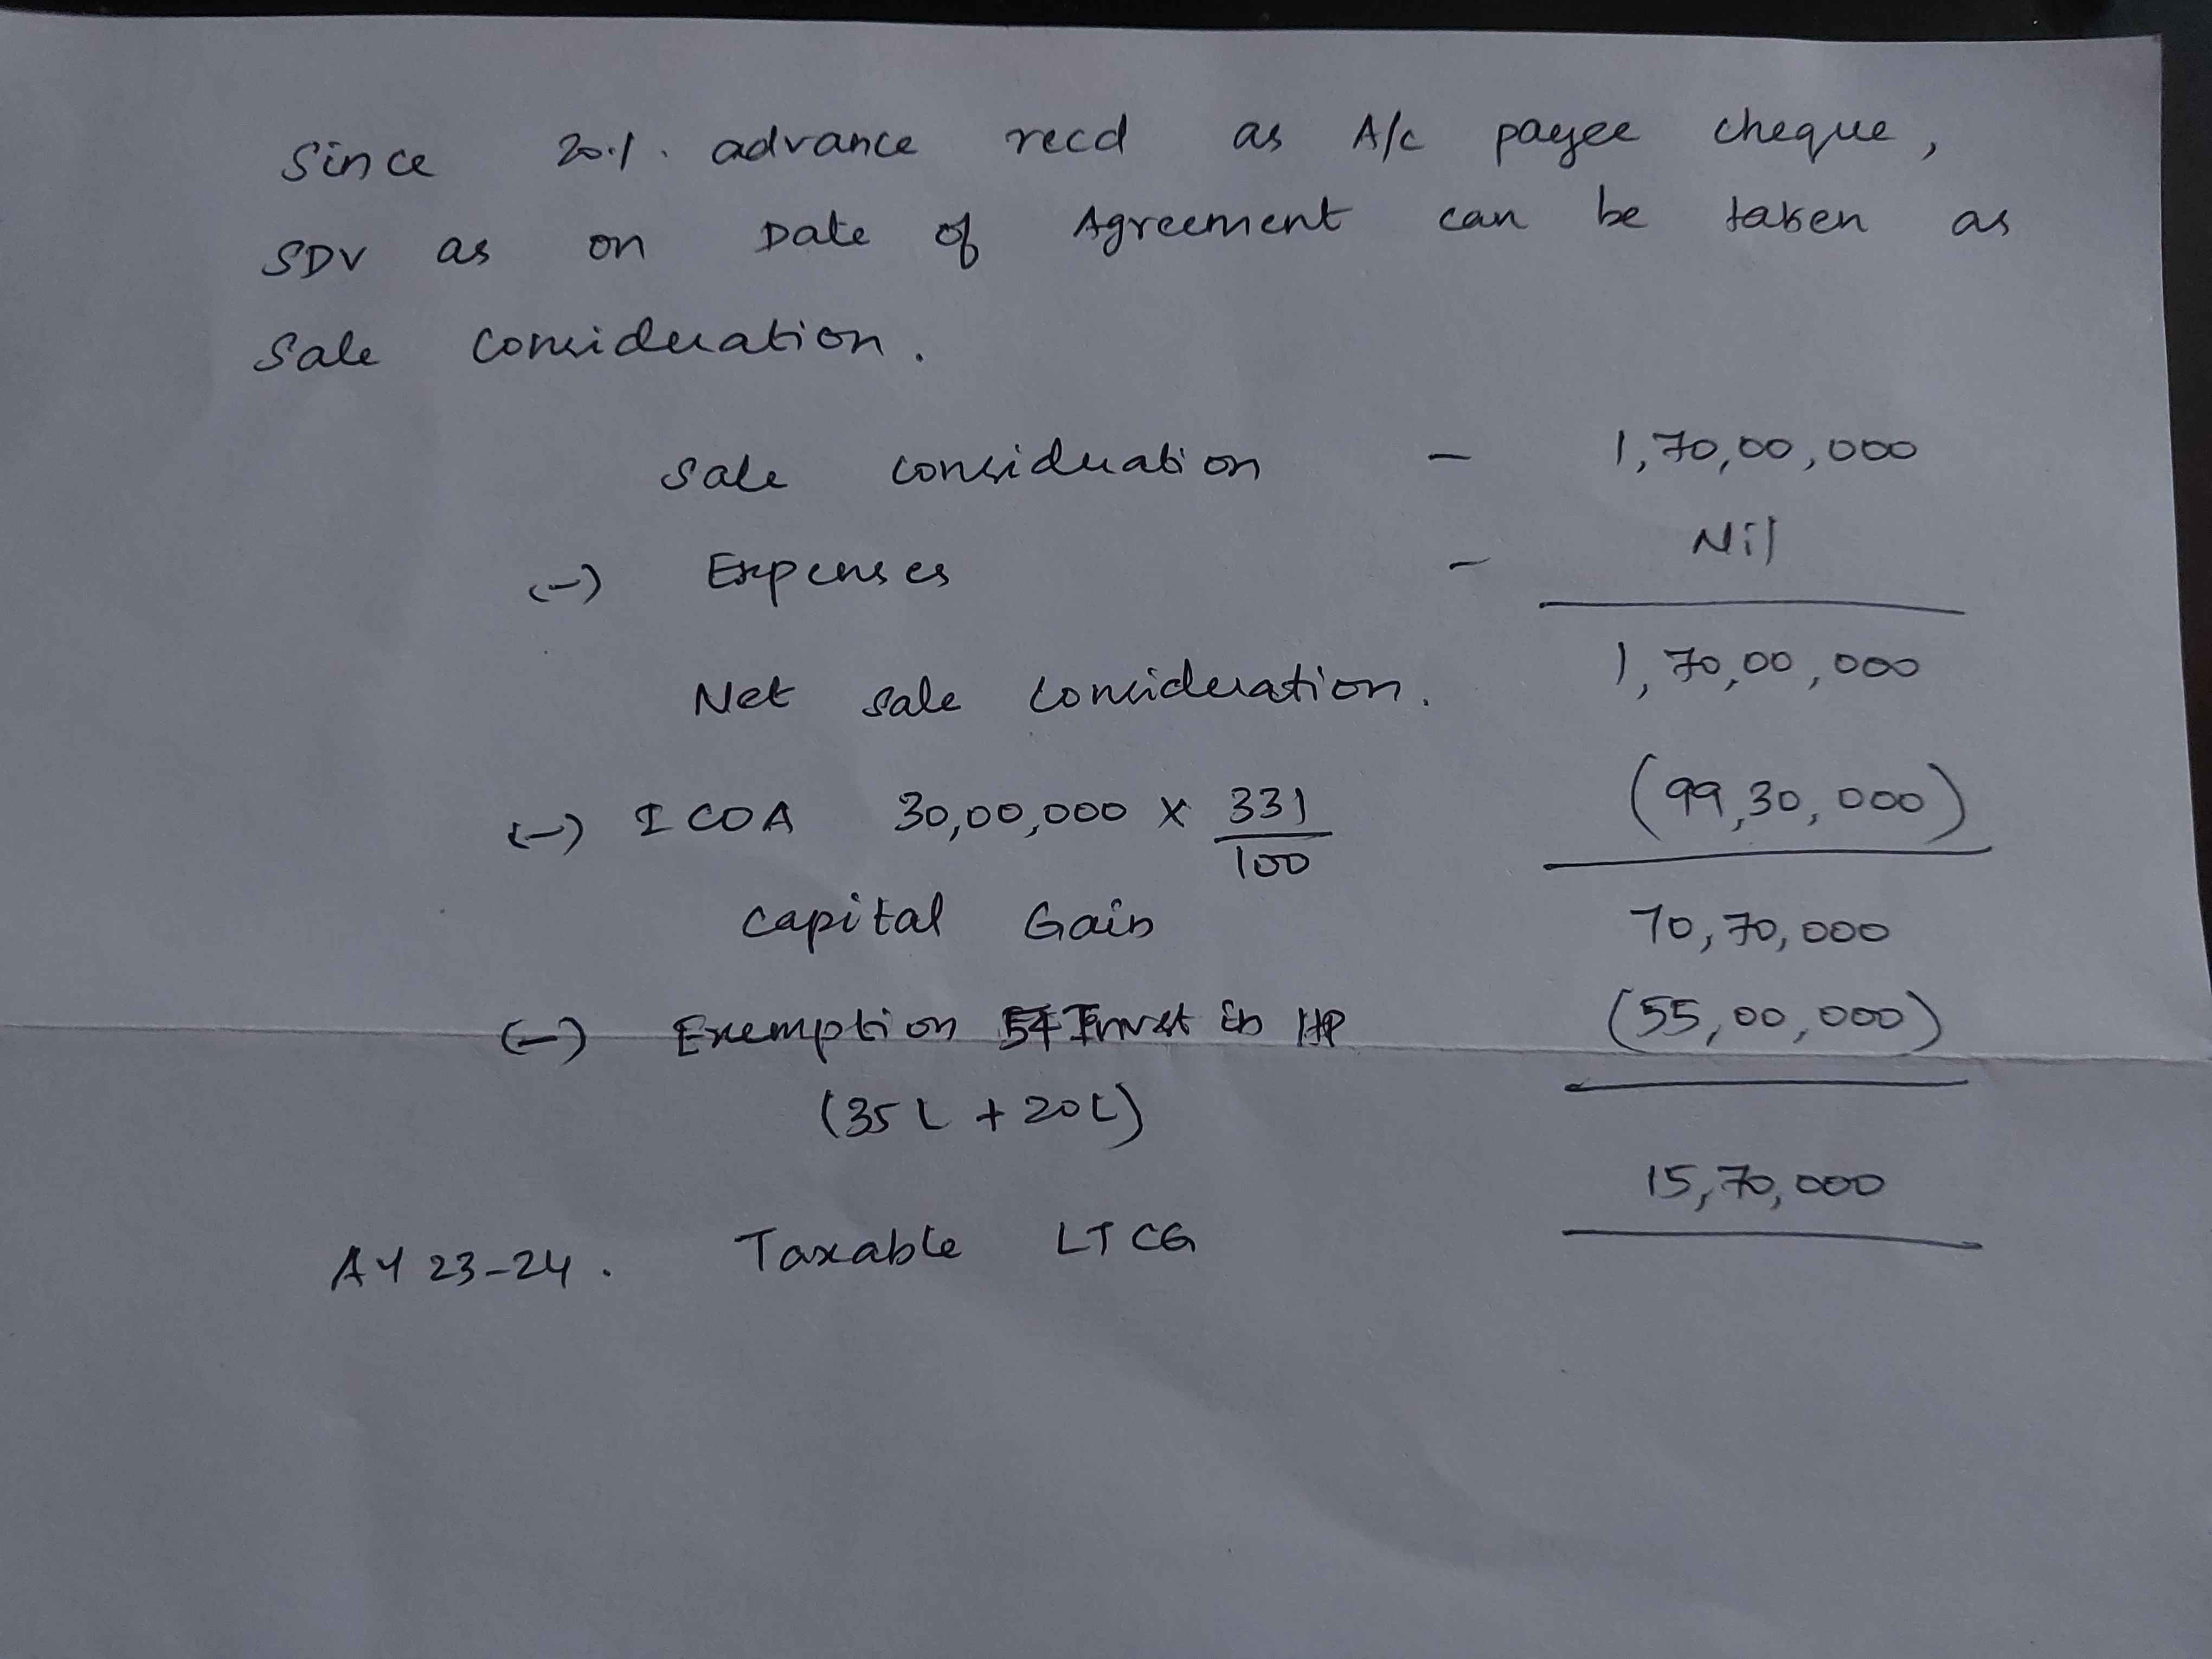 Since 20% advance recd as A/c payee cheque,
SDV as on Date of Agreement can be taken as
Sale Consideration.
Sale consideration - 1,70,00,000
(-) Expenses - Nil
Net sale consideration. 1,70,00,000
(-) ICOA 30,00,000 x 331/100 (99,30,000)
Capital Gain 70,70,000
(-) Exemption 54 Invst in HP (55,00,000)
(35L + 20L)
15,70,000
AY 23-24. Taxable LTCG